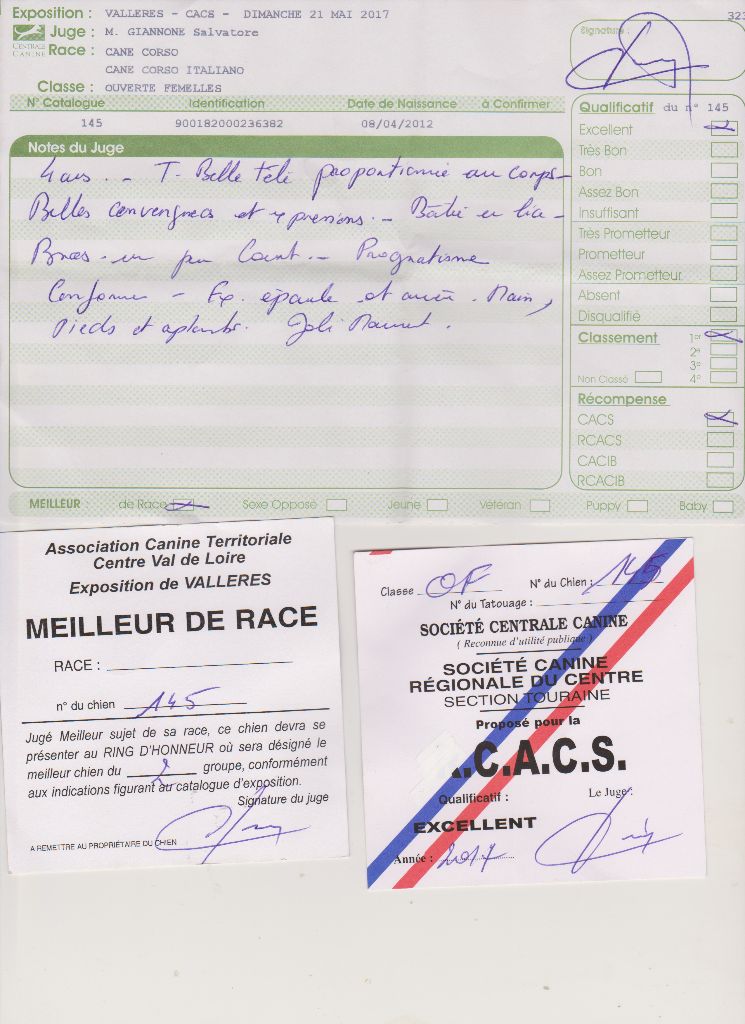 Exposition : VALLERES - CACS - DIMANCHE 21 MAI 2017
323
Juge : M. GIANNONE Salvatore
Signature :
CENTRALE CANINE
Race : CANE CORSO
CANE CORSO ITALIANO
Classe : OUVERTE FEMELLES
N° Catalogue Identification Date de Naissance à Confirmer
145 900182000236382 08/04/2012
Notes du Juge
4 ans. - T. Belle tête proportionnée au corps -
Belles convergences et expressions. - Bâtie en
un peu Court. - Prognatisme
Conforme - épaule et . Main,
Pieds et aplombs. Joli Mouvement.
Qualificatif du n° 145
Excellent
Très Bon
Bon
Assez Bon
Insuffisant
Très Prometteur
Prometteur
Assez Prometteur
Absent
Disqualifié
Classement 1er
2e
3e
Non Classé 4e
Récompense
CACS
RCACS
CACIB
RCACIB
MEILLEUR : de Race Sexe Opposé Jeune Vétéran Puppy Baby
Association Canine Territoriale
Centre Val de Loire
Exposition de VALLERES
MEILLEUR DE RACE
RACE :
n° du chien 145
Jugé Meilleur sujet de sa race, ce chien devra se
présenter au RING D'HONNEUR où sera désigné le
meilleur chien du 2 groupe, conformément
aux indications figurant au catalogue d'exposition.
Signature du juge
A REMETTRE AU PROPRIÉTAIRE DU CHIEN
Classe OF N° du Chien : 145
N° du Tatouage :
SOCIÉTÉ CENTRALE CANINE
( Reconnue d'utilité publique )
SOCIÉTÉ CANINE
RÉGIONALE DU CENTRE
SECTION TOURAINE
Proposé pour la
.C.A.C.S.
Qualificatif : Le Juge :
EXCELLENT
Année : 2017